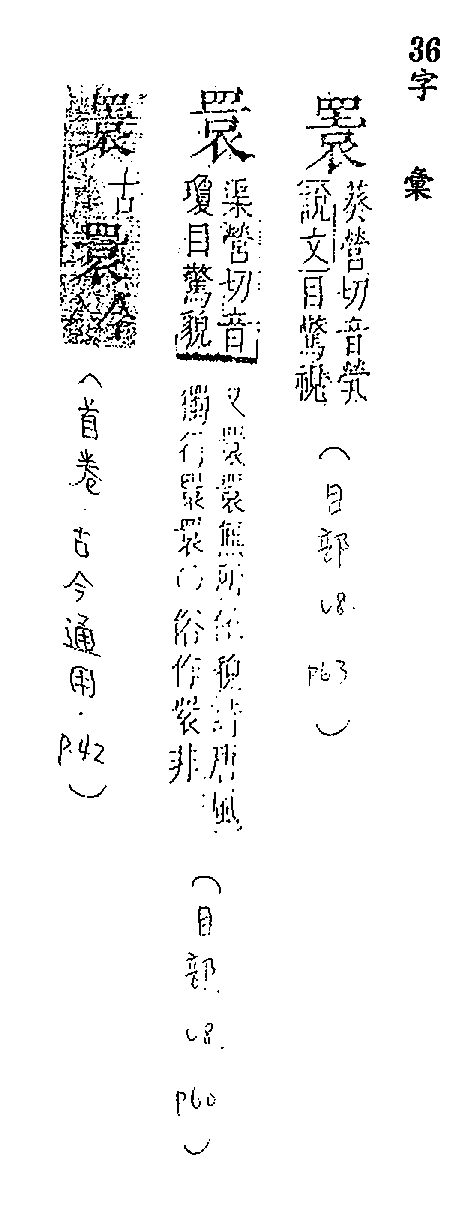 36
字彙
瞏
葵營切音煢
說文目驚視
(目部 v8. p63)
睘
渠營切音
瓊目驚貌
又睘睘無所依貌詩唐風
獨行睘睘○俗作煢非
(目部 v8. p60)
睘古
睘今
(首卷.古今通用.p.42)